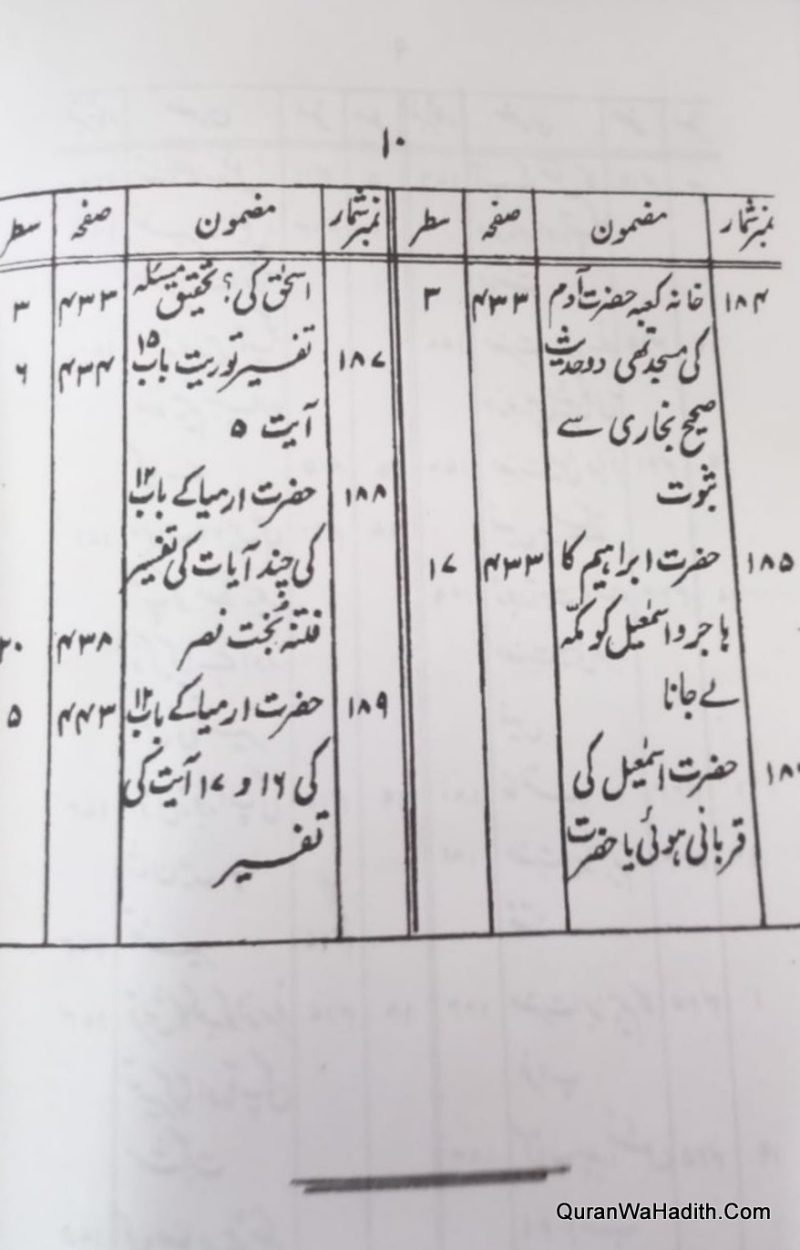 ۱۰
نمبر شمار مضمون صفحہ سطر
۱۸۴ خانہ کعبہ حضرت آدم ۴۳۳ ۳
کی مسجد تھی دو حدیث
صحیح بخاری سے
ثبوت
۱۸۵ حضرت ابراہیم کا ۴۳۳ ۱۷
ہاجر و اسمٰعیل کو مکّہ
لے جانا
حضرت اسمٰعیل کی
قربانی ہوئی یا حضرت
نمبر شمار مضمون صفحہ سطر
اسحٰق کی؟ تحقیق مسئلہ ۴۳۳ ۳
۱۸۷ تفسیر توریت باب ۱۵ ۴۳۴ ۶
آیت ۵
۱۸۸ حضرت ارمیا کے باب ۱۲
کی چند آیات کی تفسیر
فتنہ بُخت نصر ۴۳۸ ۲۰
۱۸۹ حضرت ارمیا کے باب ۱۲ ۴۴۳ ۵
کی ۱۶ و ۱۷ آیت کی
تفسیر
QuranWaHadith.Com